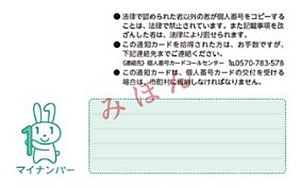 ● 法律で認められた者以外の者が個人番号をコピーする
ことは、法律で禁止されています。また記載事項を改
ざんした者は、法律により罰せられます。
● この通知カードを拾得された方は、お手数ですが、
下記連絡先までご連絡ください。
《連絡先》個人番号カードコールセンター ℡0570-783-578
● この通知カードは、個人番号カードの交付を受ける
場合は、市町村に返納しなければなりません。
みほん
マイナンバー